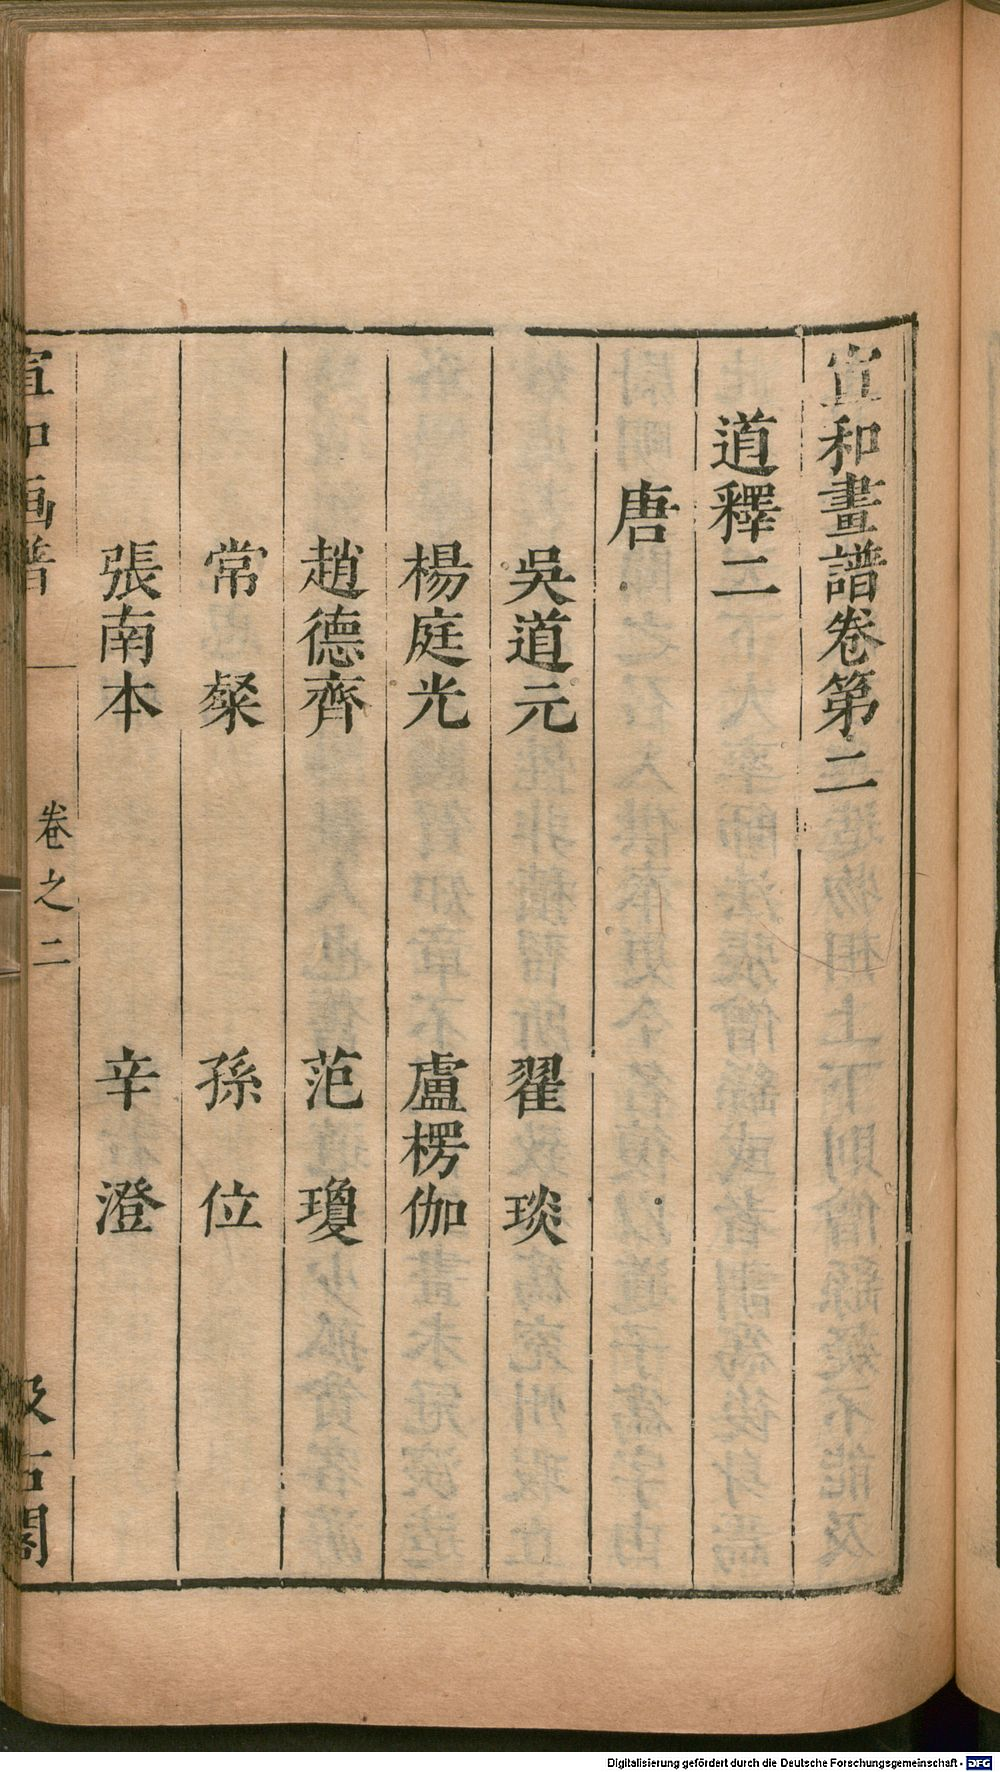 宣和畫譜卷第二
道釋二
唐
吳道元 翟琰
楊庭光 盧楞伽
趙德齊 范瓊
常粲 孫位
張南本 辛澄
宣和画譜 卷之二 汲古閣
Digitalisierung gefördert durch die Deutsche Forschungsgemeinschaft - DFG